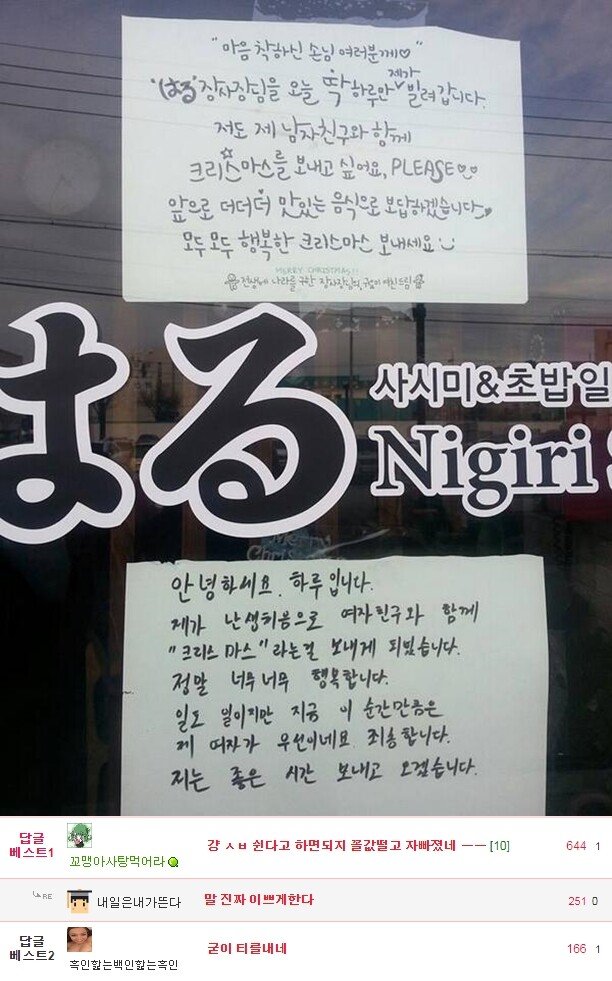 "마음 착하신 손님 여러분께♡"
'はる' 장사장님을 오늘 딱 하루만 제가 빌려 갑니다.
저도 제 남자친구와 함께
크리스마스를 보내고 싶어요, PLEASE♡♡
앞으로 더더더 맛있는 음식으로 보답하겠습니다
모두모두 행복한 크리스마스 보내세요
MERRY CHRISTMAS!!
전생에 나라를 구한 장사장님의, 여친드림
はる
사시미&초밥일
Nigiri
안녕하세요. 하루입니다.
제가 난생처음으로 여자친구와 함께
"크리스마스"라는걸 보내게 되었습니다.
정말 너무너무 행복합니다.
일도 일이지만 지금 이 순간만큼은
제 여자가 우선이네요 죄송합니다.
저는 좋은 시간 보내고 오겠습니다.
답글 베스트1 꼬맹아사탕먹어라 걍 ㅅㅂ 쉰다고 하면되지 꼴값떨고 자빠졌네 ㅡㅡ [10] 644 1
RE 내일은내가뜬다 말 진짜 이쁘게한다 251 0
답글 베스트2 흑인핥는백인핥는흑인 굳이 티를내네 166 1